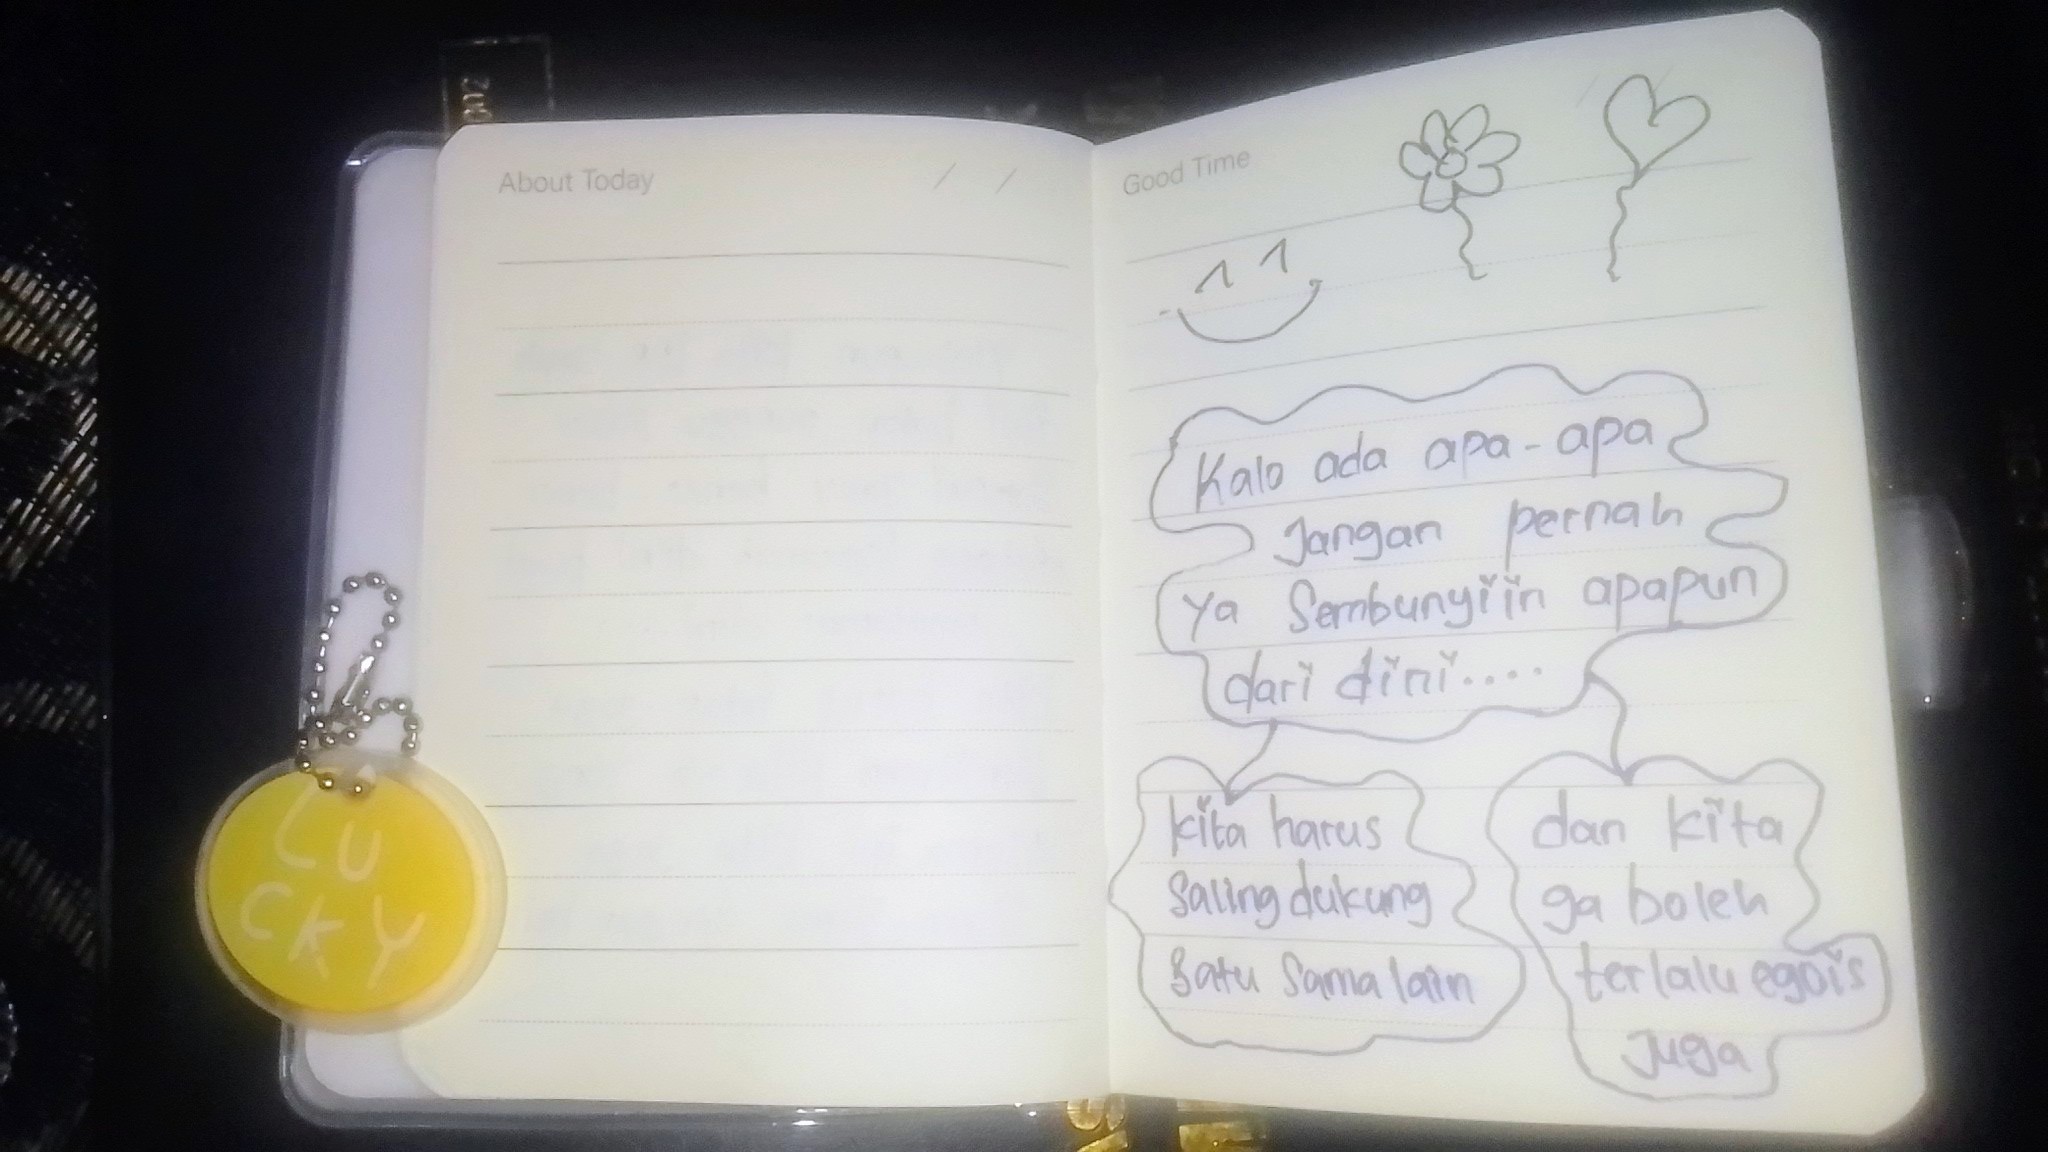 About Today / /
Good Time
Kalo ada apa-apa
Jangan pernah
ya Sembunyiin apapun
dari dini....
kita harus
Saling dukung
Satu Sama lain
dan kita
ga boleh
terlalu egois
Juga
LU
CKY